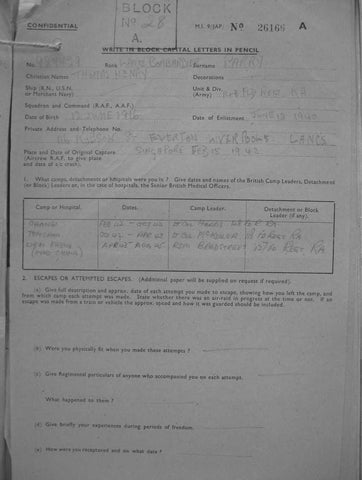 BLOCK
No 28
A.
CONFIDENTIAL
M.I. 9/JAP/ No 26166 A.
WRITE IN BLOCK CAPITAL LETTERS IN PENCIL
No. Rank BOMBARDIER Surname PARRY
Christian Names THOMAS HENRY Decorations
Ship (R.N., U.S.N. or Merchant Navy) Unit & Div. (Army) RA
Squadron and Command (R.A.F., A.A.F.)
Date of Birth JUNE 1916 Date of Enlistment JUNE 1940
Private Address and Telephone No.
ST EVERTON LIVERPOOL LANCS
Place and Date of Original Capture SINGAPORE FEB 15 1942
(Aircrew R.A.F. to give place and date of a/c crash).
1. What camps, detachments or hospitals were you in ? Give dates and names of the British Camp Leaders, Detachment
(or Block) Leaders or, in the case of hospitals, the Senior British Medical Officers.
Camp or Hospital. Dates. Camp Leader. Detachment or Block Leader (if any).
CHANGI FEB 42 - OCT 42 RA
OCT 42 - APR 45 RA
APR 45 AUG 45 RSM BRADSTREET REGT RA
2. ESCAPES OR ATTEMPTED ESCAPES. (Additional paper will be supplied on request if required).
(a) Give full description and approx. date of each attempt you made to escape, showing how you left the camp, and
from which camp each attempt was made. State whether there was an air-raid in progress at the time or not. If an
escape was made from a train or vehicle the approx. speed and how it was guarded should be included.
(b) Were you physically fit when you made these attempts ?
(c) Give Regimental particulars of anyone who accompanied you on each attempt.
What happened to them ?
(d) Give briefly your experiences during periods of freedom.
(e) How were you recaptured and on what date ?